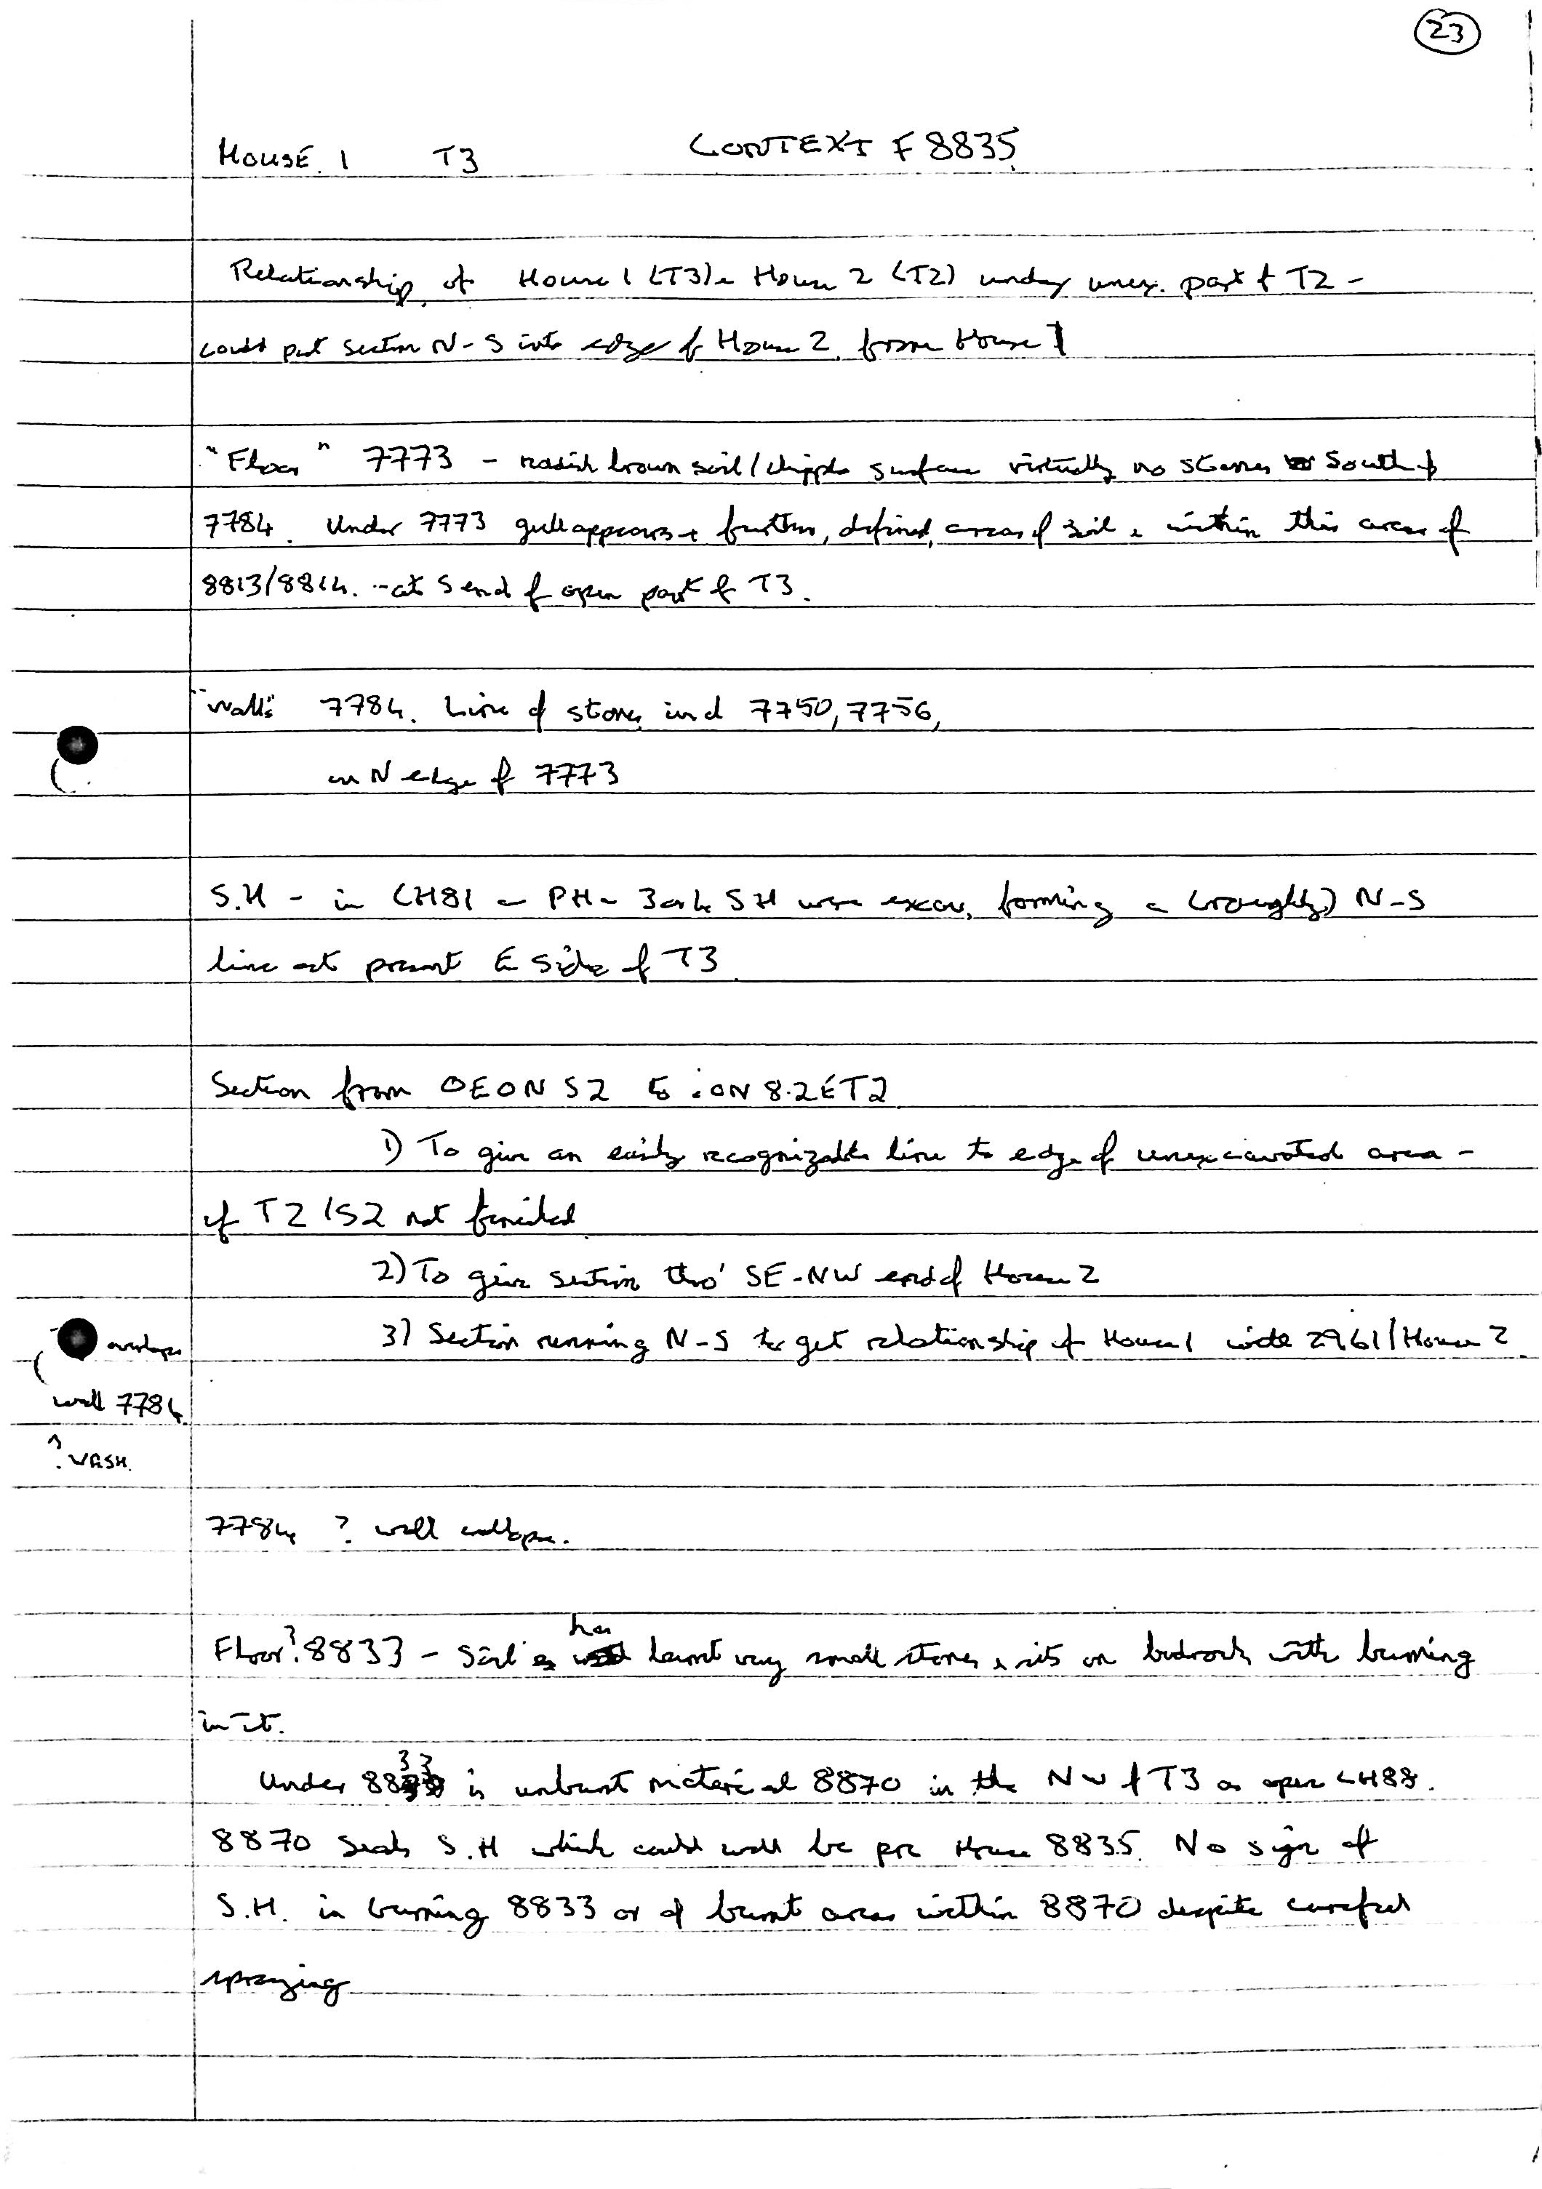 23
HOUSE 1 T3 CONTEXT F 8835
Relationship of House 1 (T3) & House 2 (T2) under unex. part of T2 -
could put section N-S into edge of House 2 from House 1
"Floor" 7773 - reddish brown soil / surface virtually no stones South of
7784. Under 7773 appears & further, defined, areas of soil & within this areas of
8813/8814. - at S end of open part of T3.
"Walls" 7784. Line of stones incl 7750, 7756,
on N edge of 7773
S.H - in CH81 - PH - 3 or 4 SH were excav. forming a (roughly) N-S
line at present E side of T3
Section from 0E0N S2 to 0N 8.2E T2
1) To give an easily recognizable line to edge of unexcavated area -
if T2/S2 not finished
2) To give section thro' SE-NW end of House 2
3) Section running N-S to get relationship of House 1 with 2961/House 2
overlaps
wall 7784
? WASH.
7784 ? wall collapse.
Floor? 8833 - Soil has burnt very small stones & sits on bedrock with burning
in it.
Under 8833 is unburnt material 8870 in the NW of T3 as open CH88.
8870 seals S.H which could well be pre House 8835. No sign of
S.H. in burning 8833 or of burnt areas within 8870 despite careful
spraying